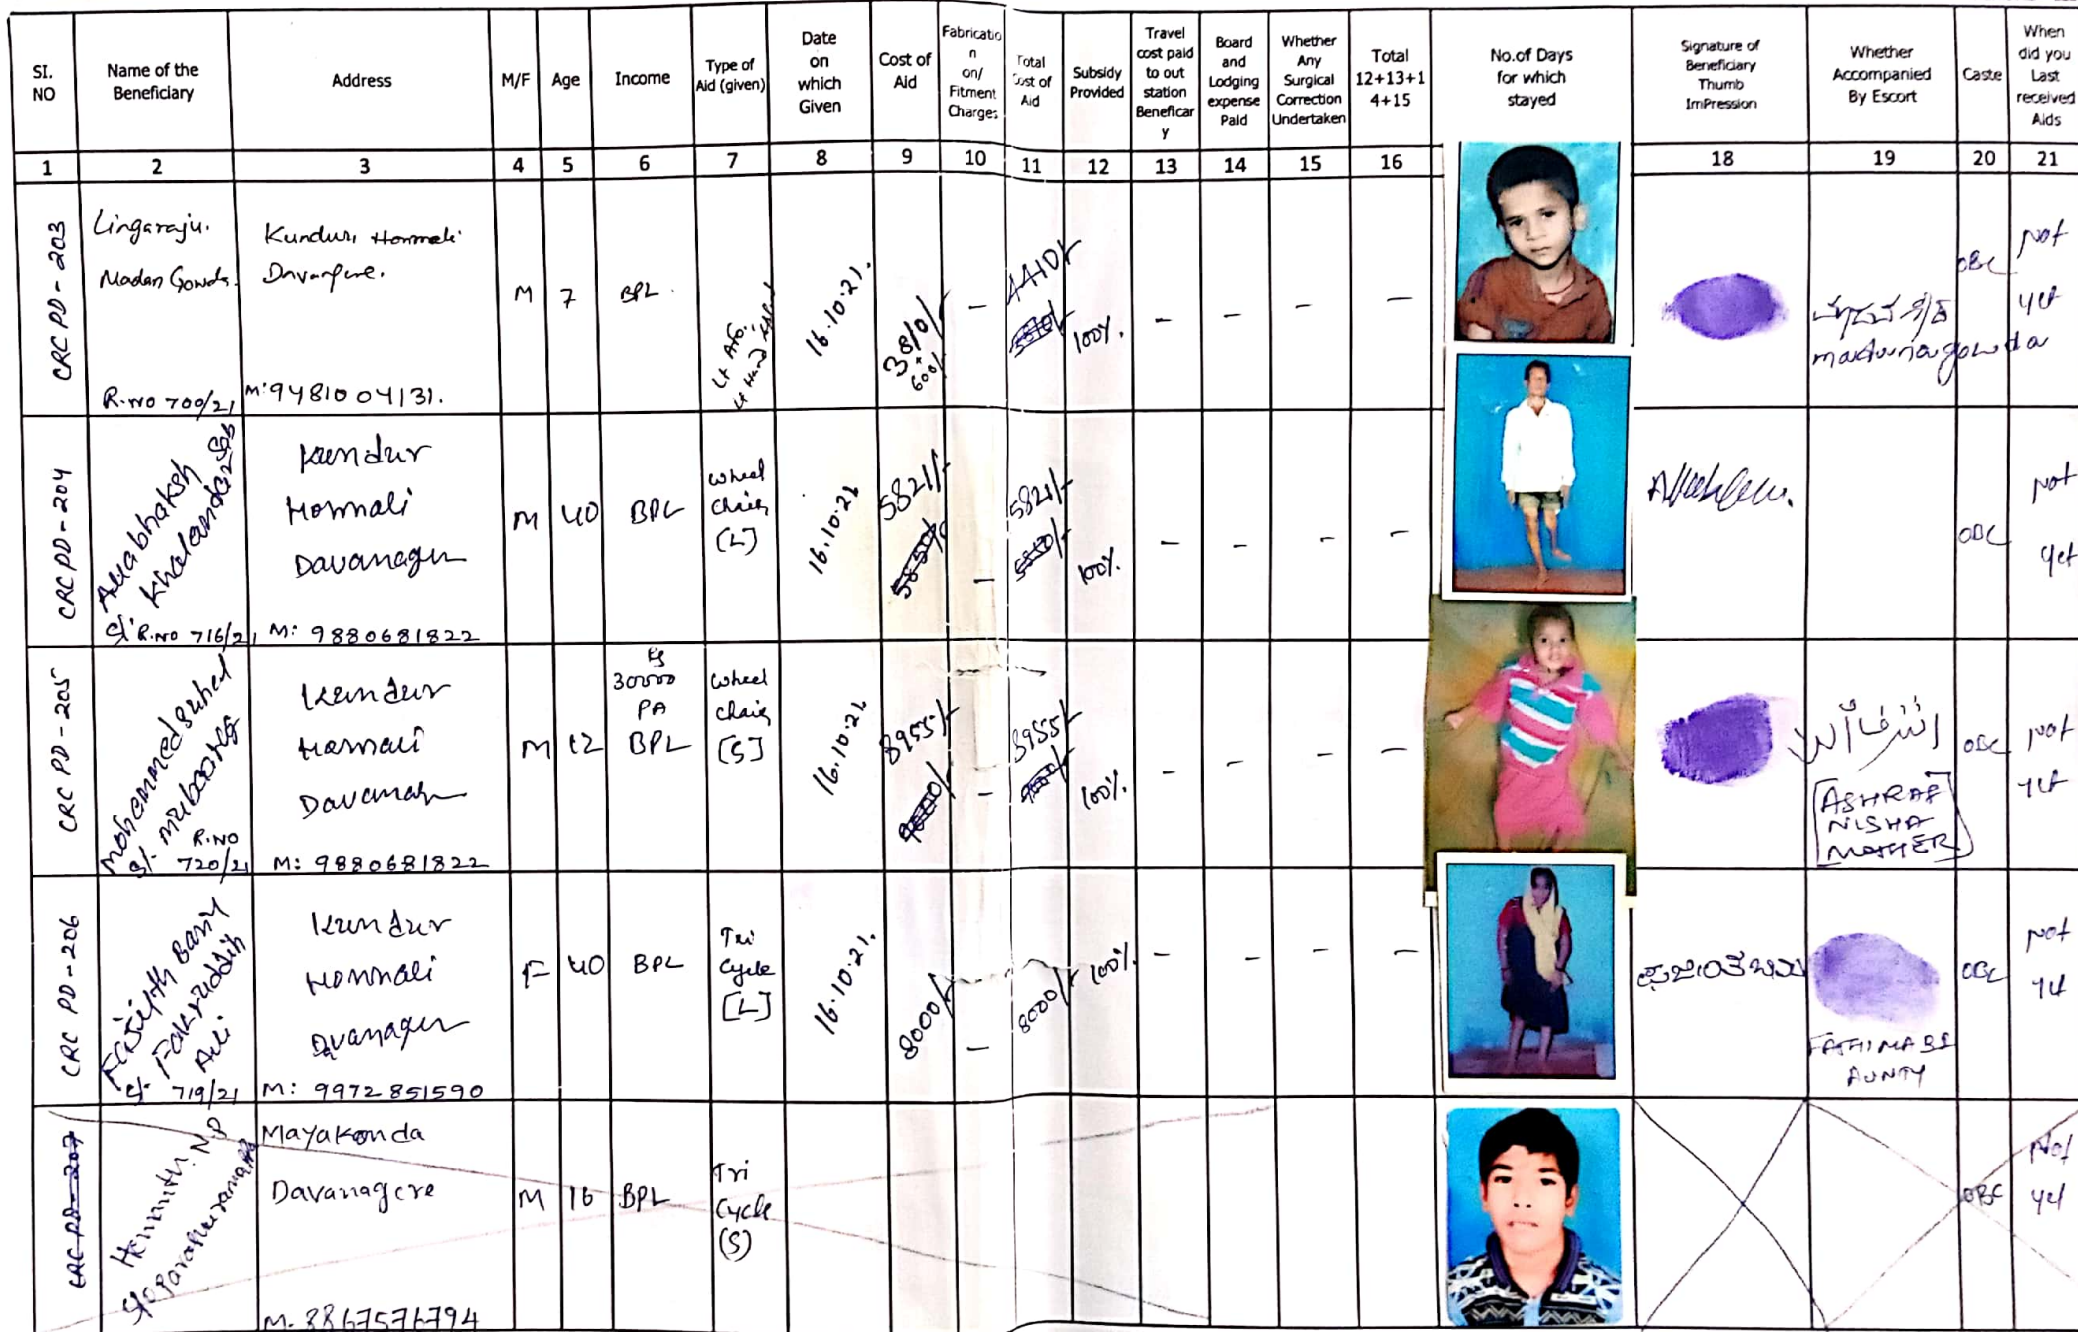 SI. NO
Name of the Beneficiary
Address
M/F
Age
Income
Type of Aid (given)
Date on which Given
Cost of Aid
Fabricatio n on/ Fitment Charges
Total Cost of Aid
Subsidy Provided
Travel cost paid to out station Beneficar y
Board and Lodging expense Paid
Whether Any Surgical Correction Undertaken
Total 12+13+1 4+15
No.of Days for which stayed
Signature of Beneficiary Thumb ImPression
Whether Accompanied By Escort
Caste
When did you Last received Aids
1 2 3 4 5 6 7 8 9 10 11 12 13 14 15 16 18 19 20 21
CRC PD - 203
Lingaraju.
Madan Gowda.
R.NO 700/21
Kundur, Honnali
M: 9481004131.
M
7
BPL.
Lt Afo.
Lt Hand
16.10.21.
3810/
+
600/
-
4410/-
100%.
-
-
-
-
madunagowda
OBC
Not
yet
CRC PD - 204
Khalandar Sab
R.NO 716/21
Kundur
Honnali
M: 9880681822
M
40
BPL
Wheel
Chair
[L]
16.10.21
5821/-
-
5821/-
100%.
-
-
-
-
OBC
Not
yet
CRC PD - 205
Mohammed Suhel
R.NO
720/21
Kundur
Honnali
M: 9880681822
M
12
30000
PA
BPL
Wheel
Chair
[S]
16.10.21.
8955/-
-
8955/-
100%.
-
-
-
-
[ASHRAF
NISHA
MOTHER]
OBC
Not
yet
CRC PD - 206
Fakruddin
Ali
719/21
Kundur
Honnali
M: 9972851590
F
40
BPL
Tri
Cycle
[L]
16.10.21.
8000/-
-
8000/-
100%.
-
-
-
-
FATHIMABI
AUNTY
OBC
Not
yet
CRC PD - 207
Mayakonda
Davanagere
M. 8867576794
M
16
BPL
Tri
Cycle
(S)
OBC
Not
yet